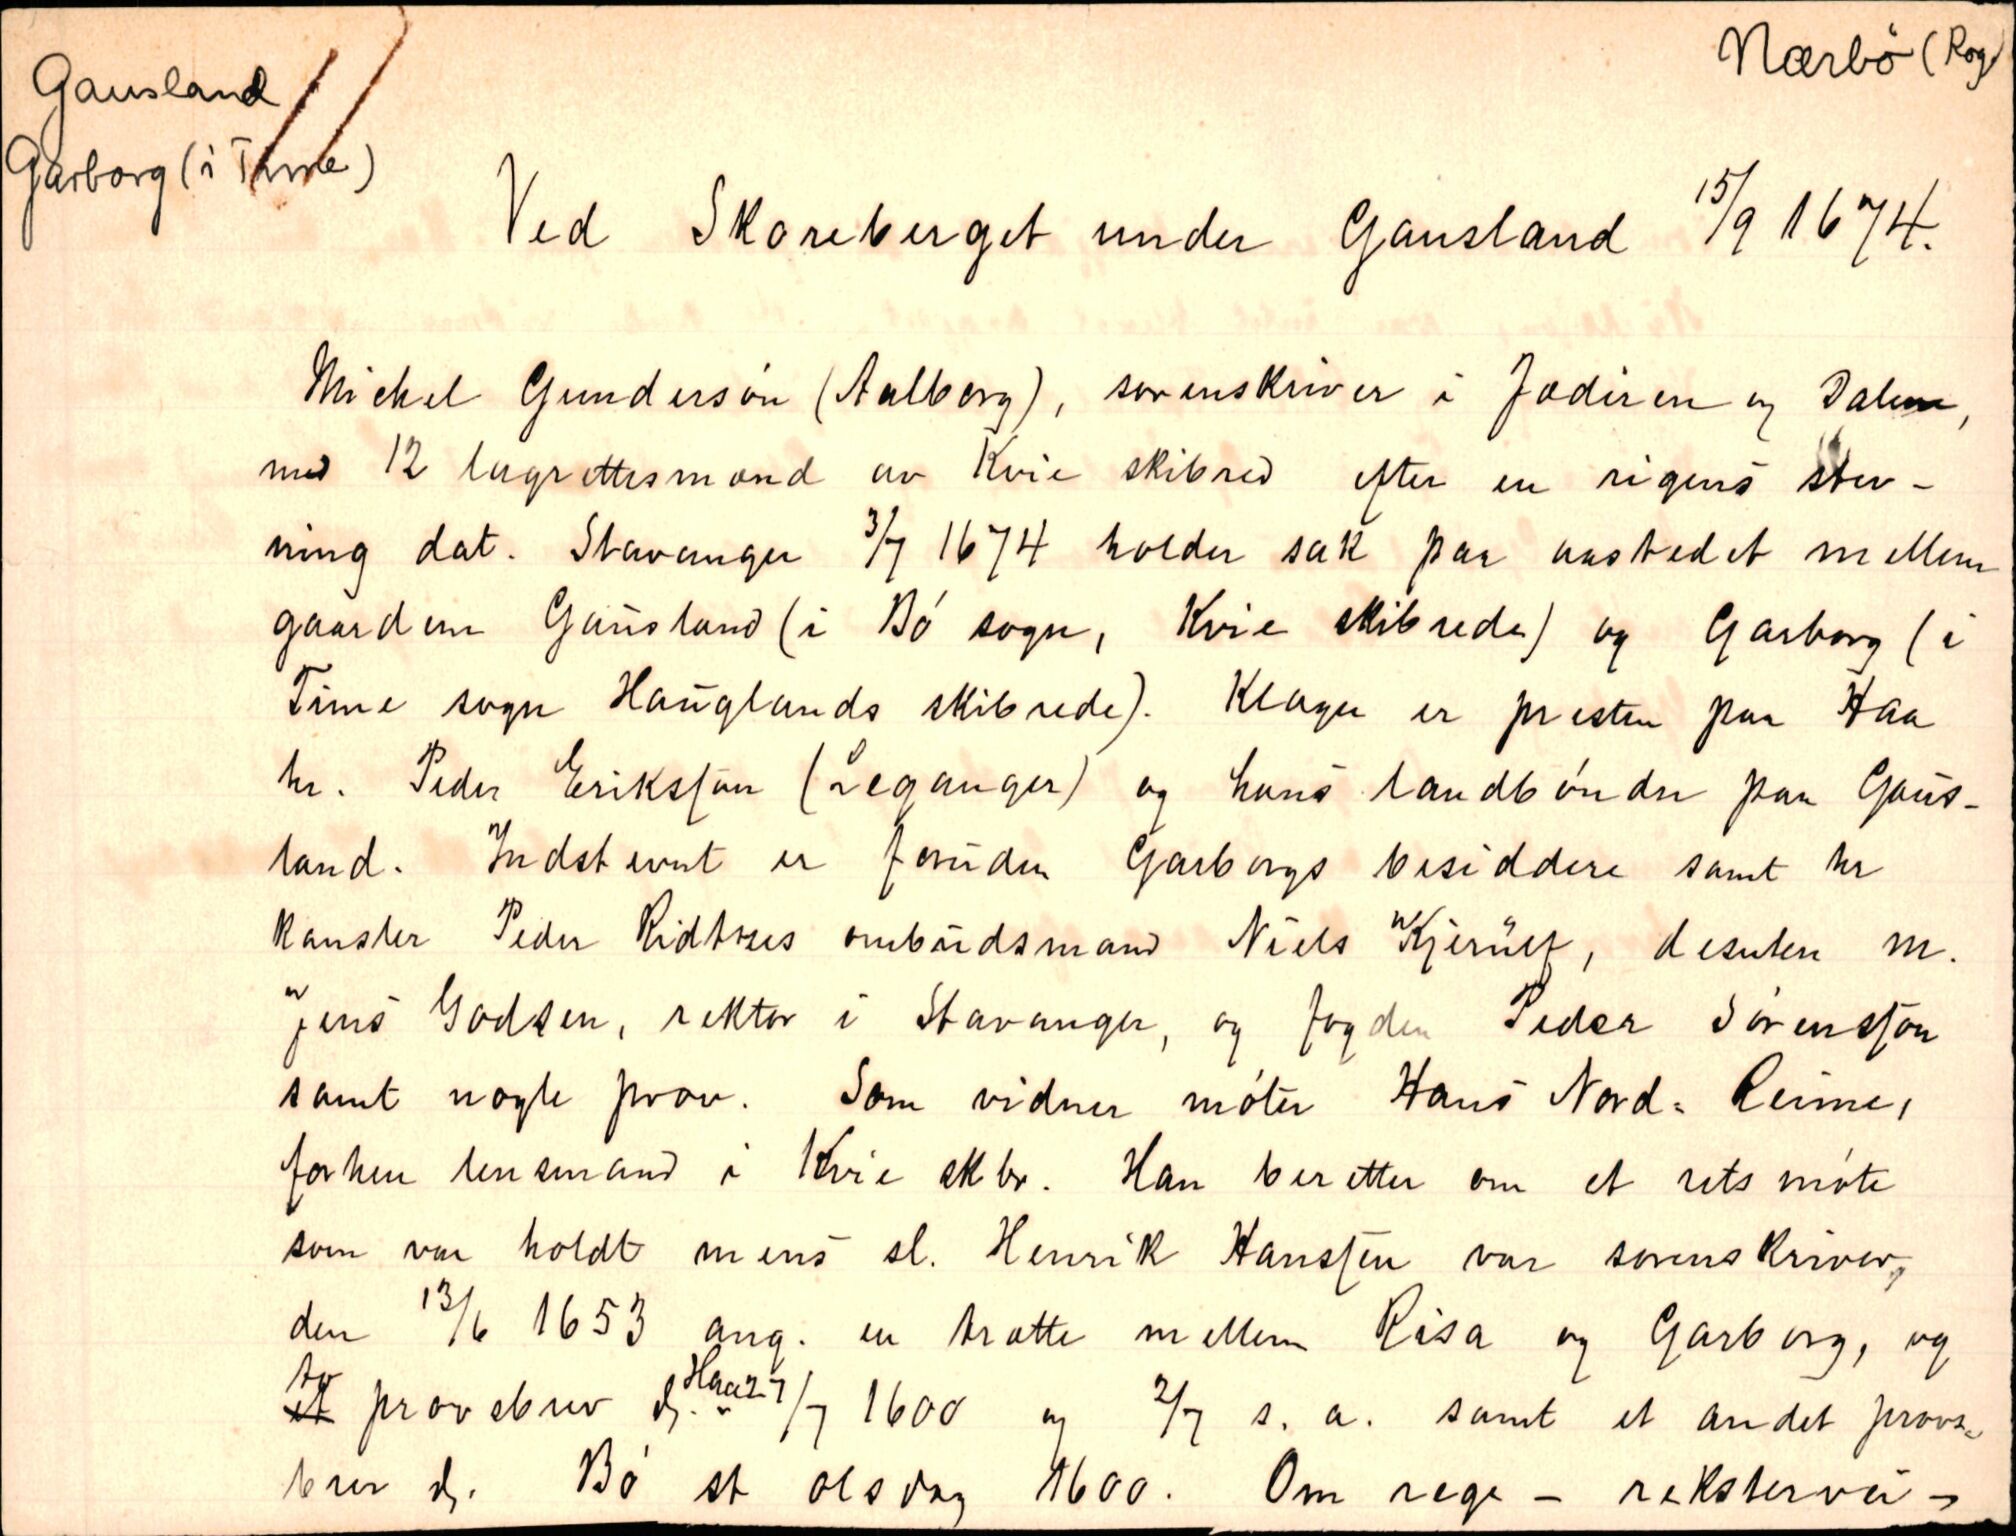 Gausland
Garborg (i Time)
Nærbö (Rog)
Ved Skoreberget under Gausland 15/9 1674.
Mickel Gundersön (Aalborg), sorenskriver i Jæderen og Dalene,
med 12 lagrettesmænd av Kvie skibred efter en rigens stev-
ning dat. Stavanger 3/7 1674 holder sak paa aastedet mellem
gaardene Gausland (i Bö sogn, Kvie skibrede) og Garborg (i
Time sogn Hauglands skibrede). Klager er presten paa Haa
hr. Peder Eriksføn (Leganger) og hans landbönder paa Gaus-
land. Indstevnt er foruden Garborgs besiddere samt hr
kansler Peder Ridtzes ombudsmand Niels Kjerulf, desuten m.
Jens Godzen, rektor i Stavanger, og fogden Peder Sörensfön
samt nogle prov. Som vidner möter Hans Nord-Reime,
forhen lensmand i Kvie skbr. Han beretter om et retsmöte
som var holdt mens sl. Henrik Hansfen var sorenskriver,
den 13/6 1653 ang. en trætte mellem Risa og Garborg, og
to
et provsbrev d. Haa 27/7 1600 og 2/7 s. a. samt et andet provs-
brev d. Bö st olsdag 1600. Om rege- rekstervei-